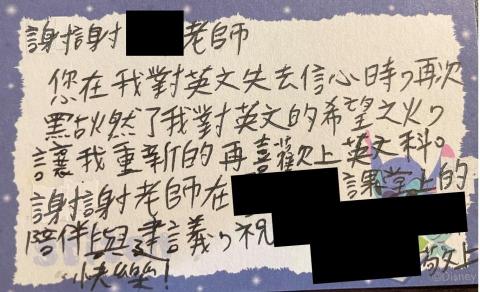 謝謝 老師
您在我對英文失去信心時，再次
點燃了我對英文的希望之火，
讓我重新的再喜歡上英文科。
謝謝老師在 課堂上的
陪伴與建議，祝
快樂！ 敬上
©Disney